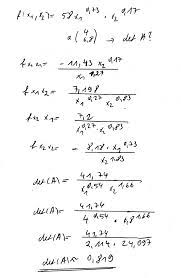 f(x1,x2) = 58x1^0,73 · x2^0,17
a (4 6,8) → det A?
f x1x1 = -11,43 x2^0,17 / x1^1,27
f x1x2 = 7,198 / x1^0,27 x2^0,83
f x2x1 = 7,2 / x1^0,27 x2^0,83
f x2x2 = - 8,18 · x1^0,73 / x2^1,83
det(A) = 41,74 / x1^0,54 x2^1,66
det(A) = 41,74 / 4^0,54 · 6,8^1,66
det(A) = 41,74 / 2,114 · 24,097
det(A) ≈ 0,819